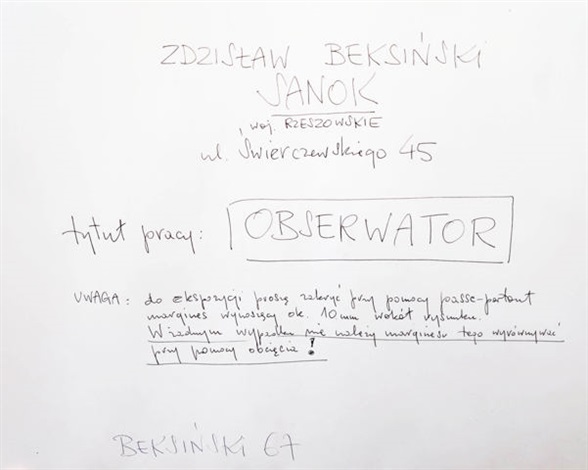 ZDZISŁAW BEKSIŃSKI
SANOK
woj. RZESZOWSKIE
ul. Świerczewskiego 45
tytuł pracy: OBSERWATOR
UWAGA: do ekspozycji proszę zakryć przy pomocy passe-partout
margines wynoszący ok. 10 mm wokół rysunku.
W żadnym wypadku nie należy marginesu tego wyrównywać
przy pomocy obcięcia!
BEKSIŃSKI 67